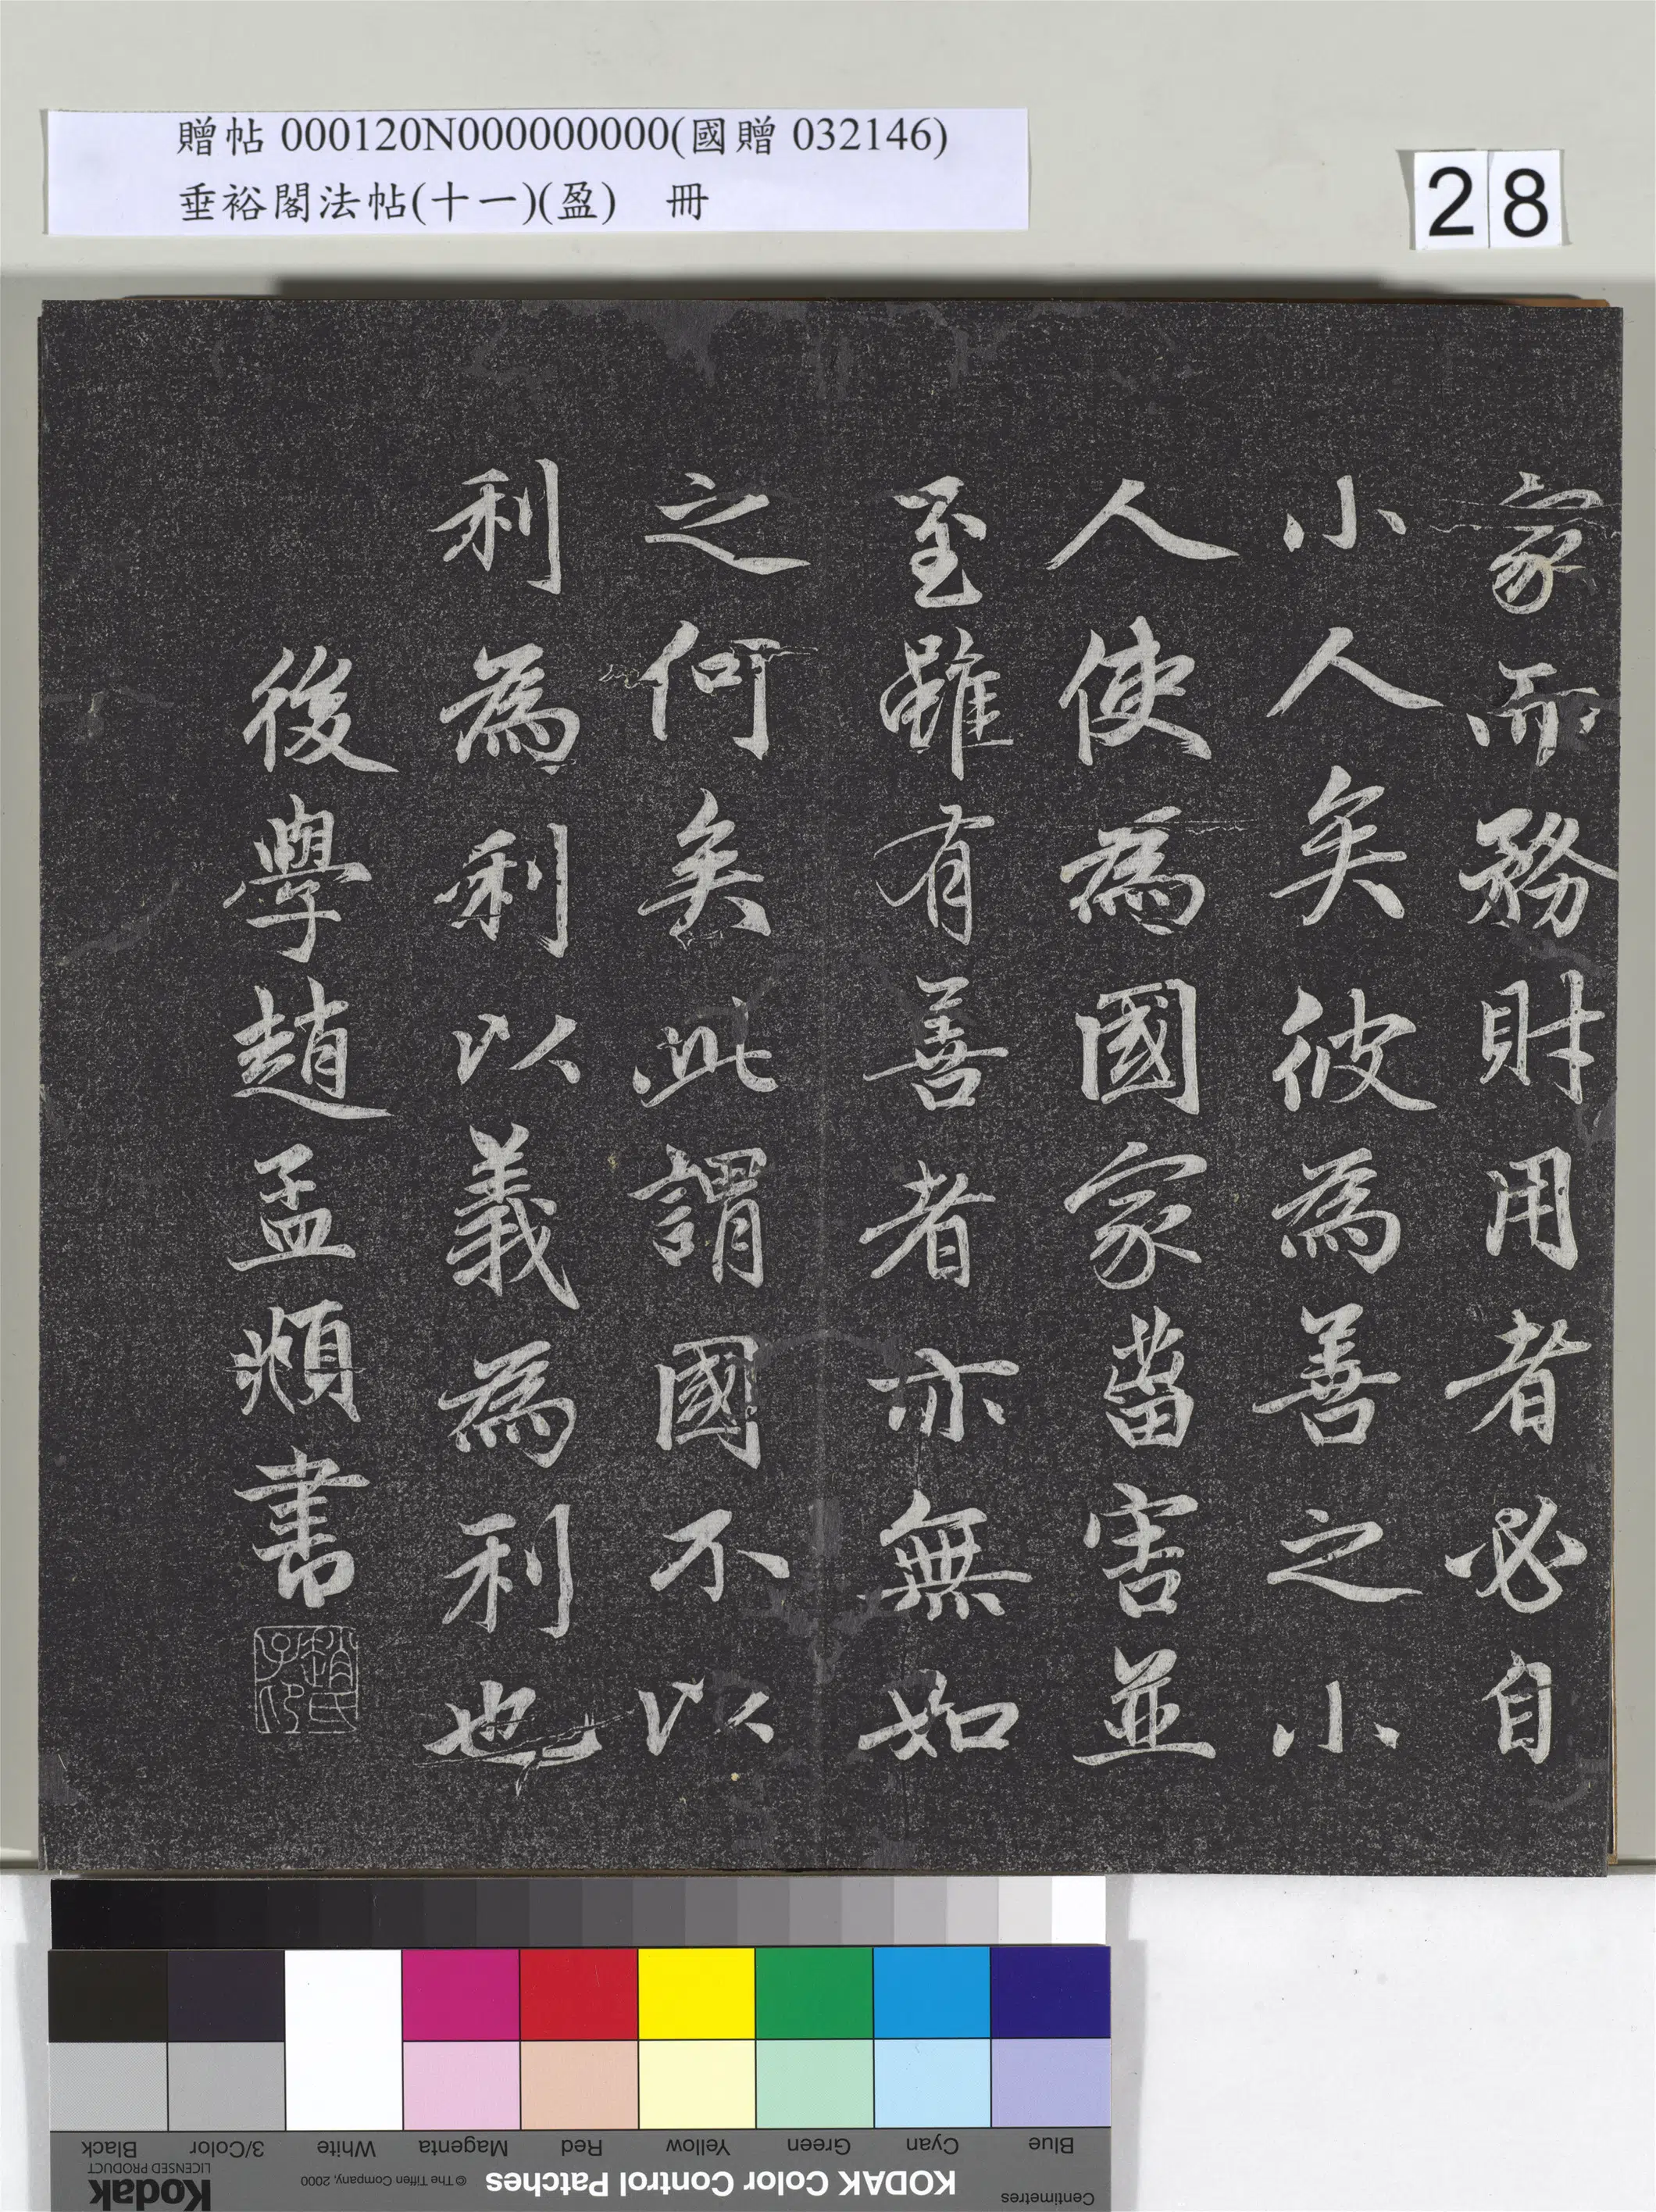 贈帖 000120N000000000(國贈 032146)
垂裕閣法帖(十一)(盈) 冊
28
家而務財用者必自
小人矣彼為善之小
人使為國家菑害並
至雖有善者亦無如
之何矣此謂國不以
利為利以義為利也
後學趙孟頫書
趙氏子印
Black 3/Color White Magenta Red Yellow Green Cyan Blue
Kodak
LICENSED PRODUCT
© The Tiffen Company, 2000
KODAK Color Control Patches
Centimetres